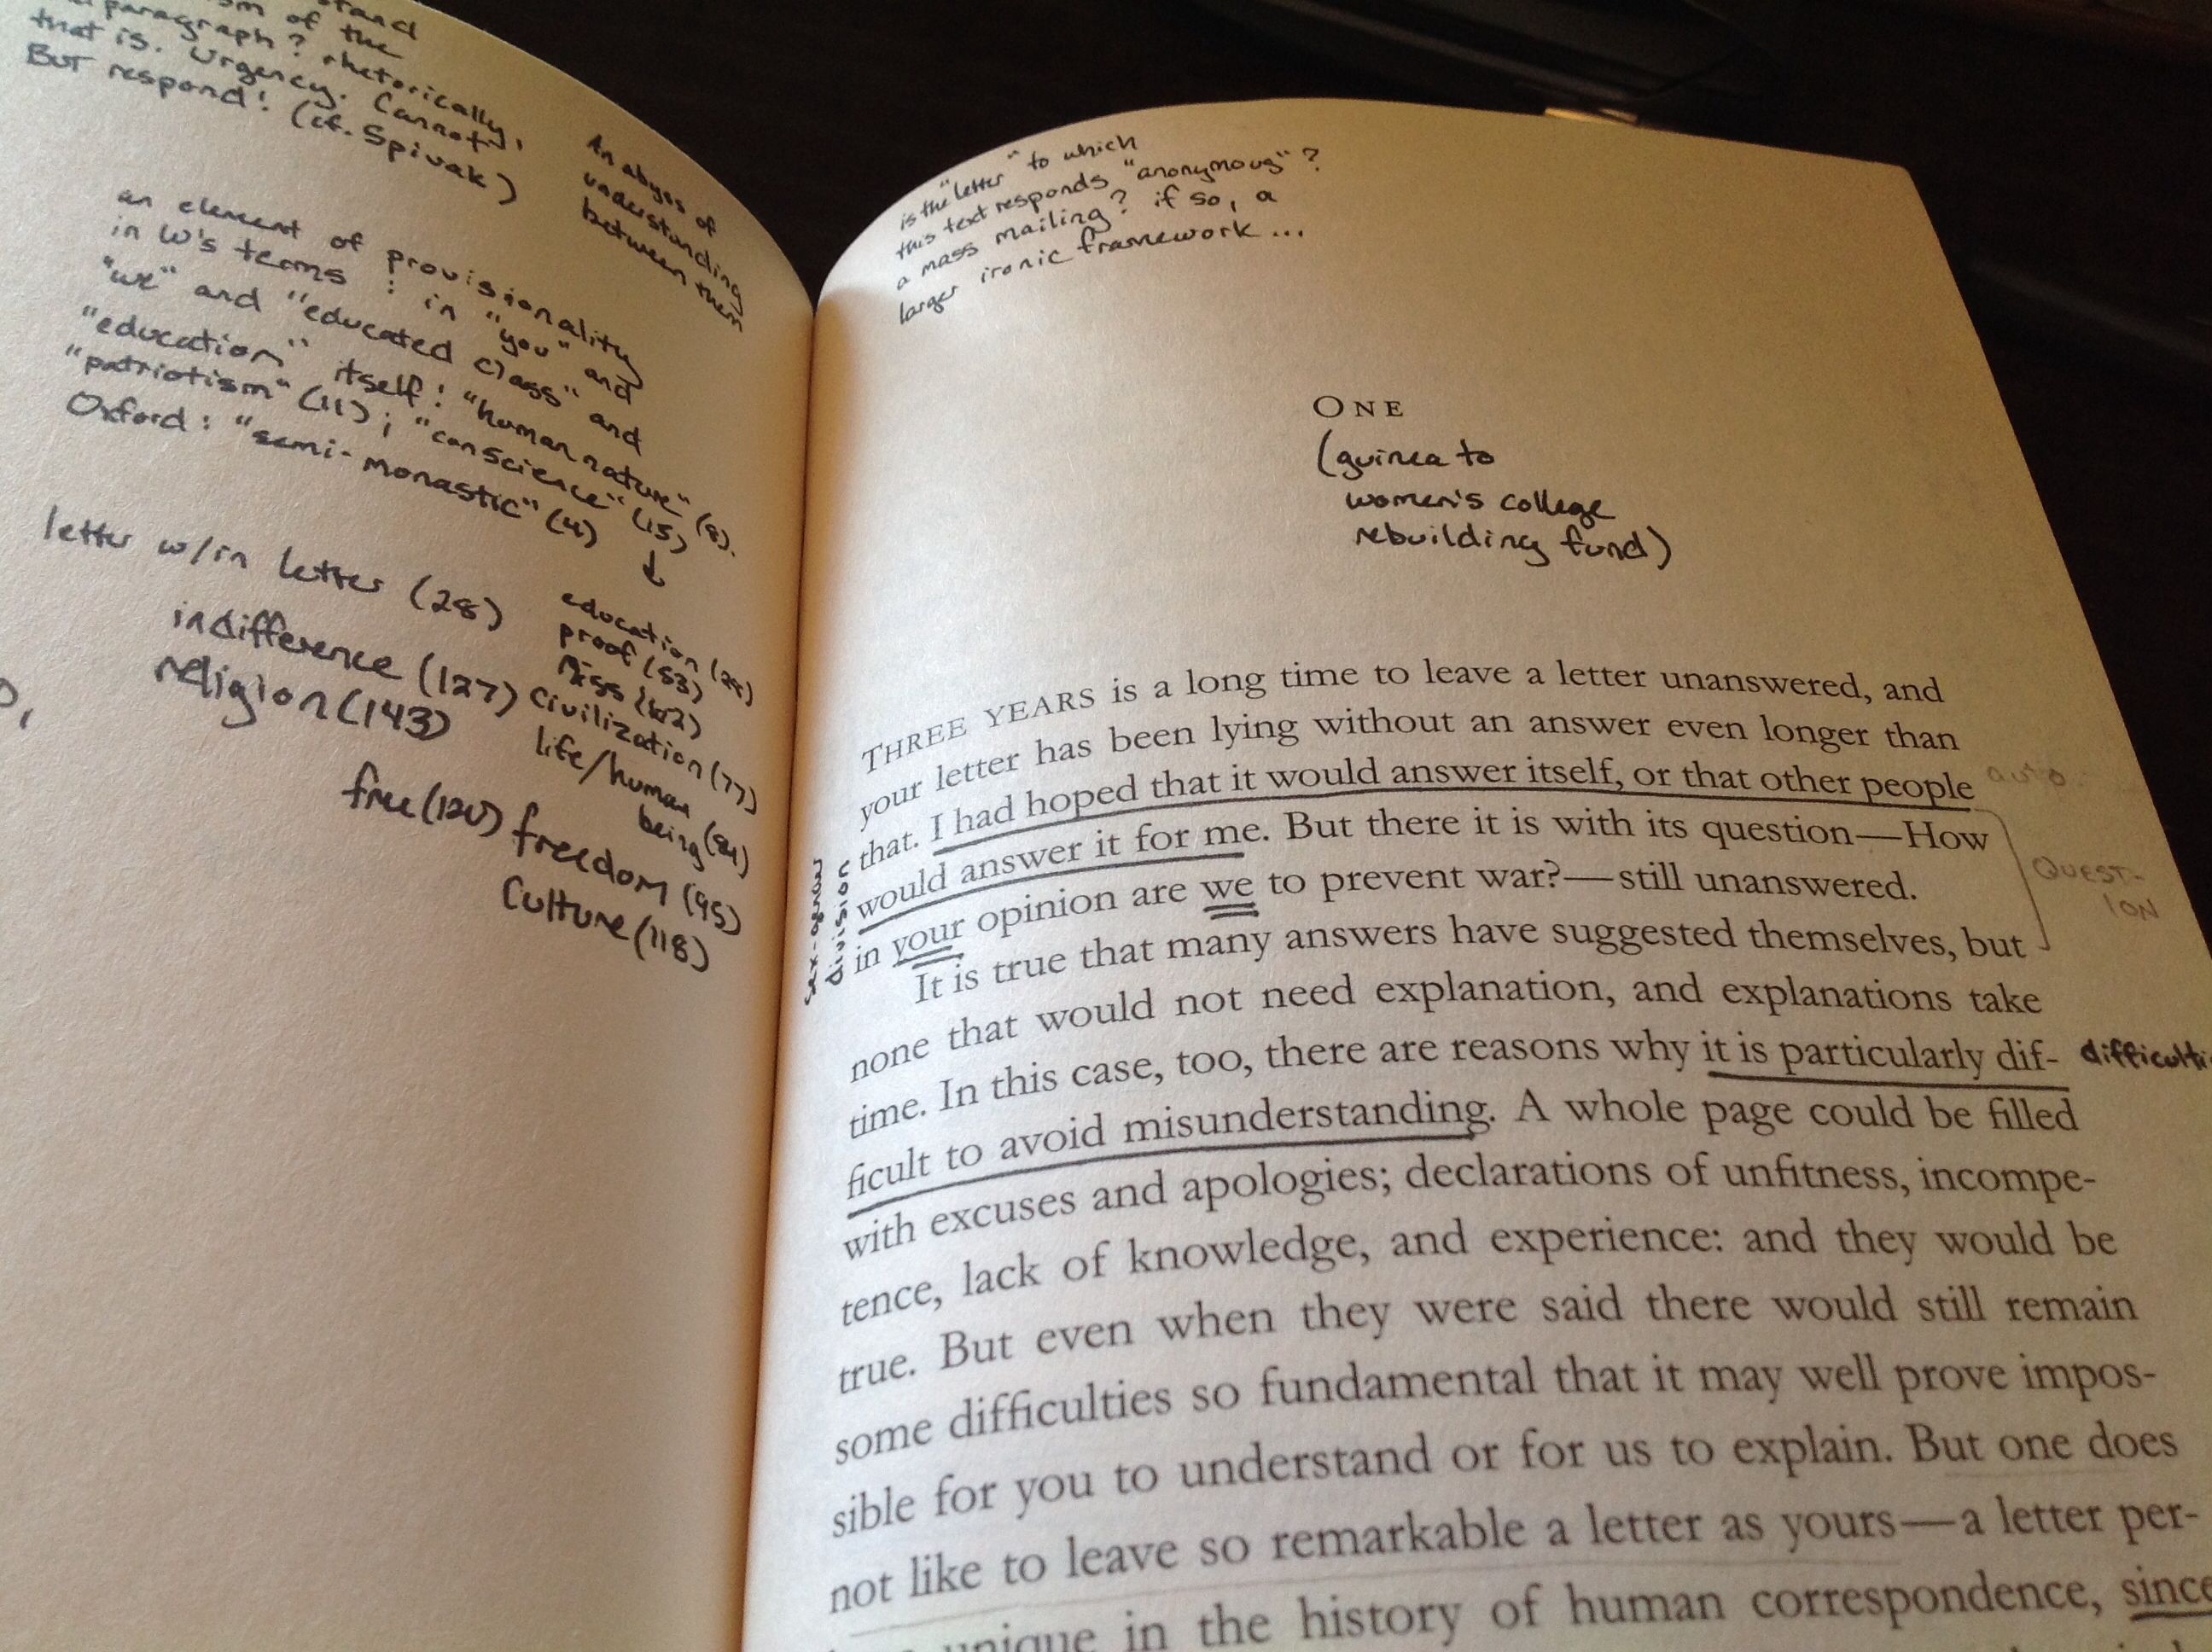 stand
of the
paragraph? rhetorically,
that is. Urgency. Cannot,
But respond! (cf. Spivak)
An abyss of
understanding
between them
an element of provisionality
in W's terms: in "you" and
"we" and "educated class" and
"education" itself! "human nature" (8).
"patriotism" (11); "conscience" (15)
Oxford: "semi-monastic" (4)
↓
letter w/in letter (28)
indifference (127)
religion (143)
education (29)
proof (53)
civilization (77)
life/human
being (84)
free (120) freedom (95)
Culture (118)
is the "letter" to which
this text responds "anonymous"?
a mass mailing? if so, a
larger ironic framework...
ONE
(guinea to
women's college
rebuilding fund)
THREE YEARS is a long time to leave a letter unanswered, and
your letter has been lying without an answer even longer than
that. I had hoped that it would answer itself, or that other people
auto
would answer it for me. But there it is with its question—How
in your opinion are we to prevent war?—still unanswered.
QUEST-
ION
division
It is true that many answers have suggested themselves, but
none that would not need explanation, and explanations take
time. In this case, too, there are reasons why it is particularly dif-
ficult to avoid misunderstanding. A whole page could be filled
with excuses and apologies; declarations of unfitness, incompe-
tence, lack of knowledge, and experience: and they would be
true. But even when they were said there would still remain
some difficulties so fundamental that it may well prove impos-
sible for you to understand or for us to explain. But one does
not like to leave so remarkable a letter as yours—a letter per-
unique in the history of human correspondence, since